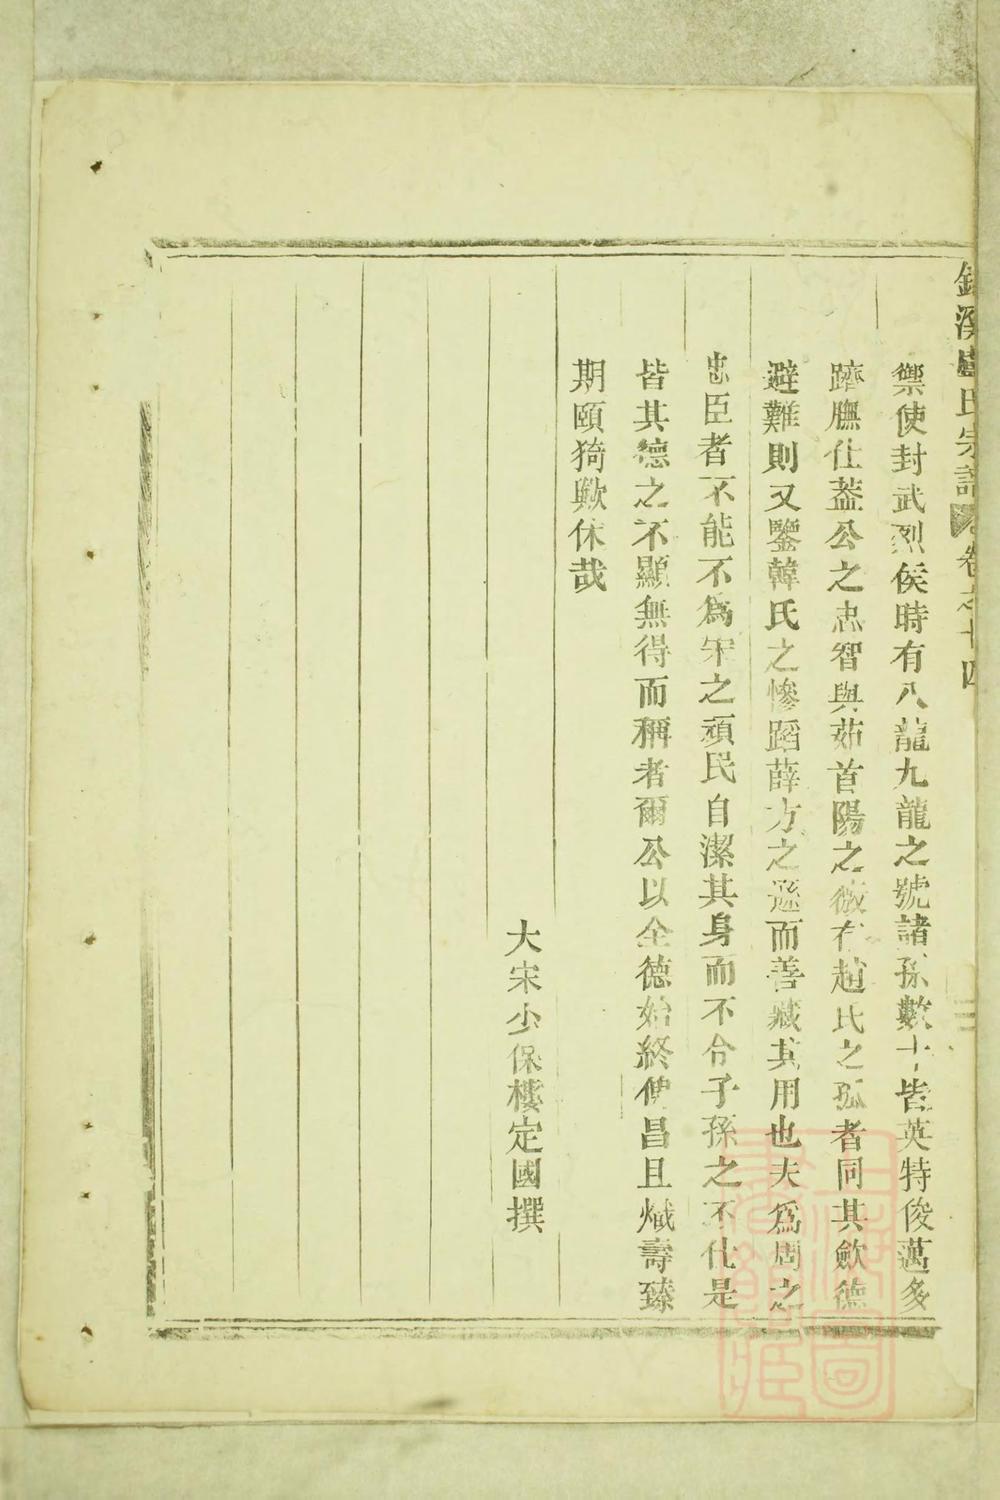 溪盧氏宗譜 卷之十四
禦使封武烈侯時有八龍九龍之號諸孫數十皆英特俊邁多
躋膴仕葢公之忠智與茹首陽之薇存趙氏之孤者同其歛德
避難則又鑒韓氏之慘蹈薛方之遜而善藏其用也夫爲周之
忠臣者不能不爲宋之頑民自潔其身而不令子孫之不仕是
皆其德之不顯無得而稱者爾公以全德始終俾昌且熾壽臻
期頤猗歟休哉
大宋少保樓定國撰